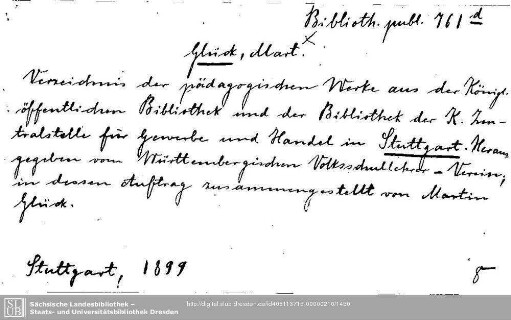 Biblioth. publ. 761 d
Glück, Mart.
Verzeichnis der pädagogischen Werke aus der Königl.
öffentlichen Bibliothek und der Bibliothek der K. Zen-
tralstelle für Gewerbe und Handel in Stuttgart. Heraus
gegeben vom Württembergischen Volksschullehrer-Verein;
in dessen Auftrag zusammengestellt von Martin
Glück.
Stuttgart, 1899
8
Sächsische Landesbibliothek –
Staats- und Universitätsbibliothek Dresden